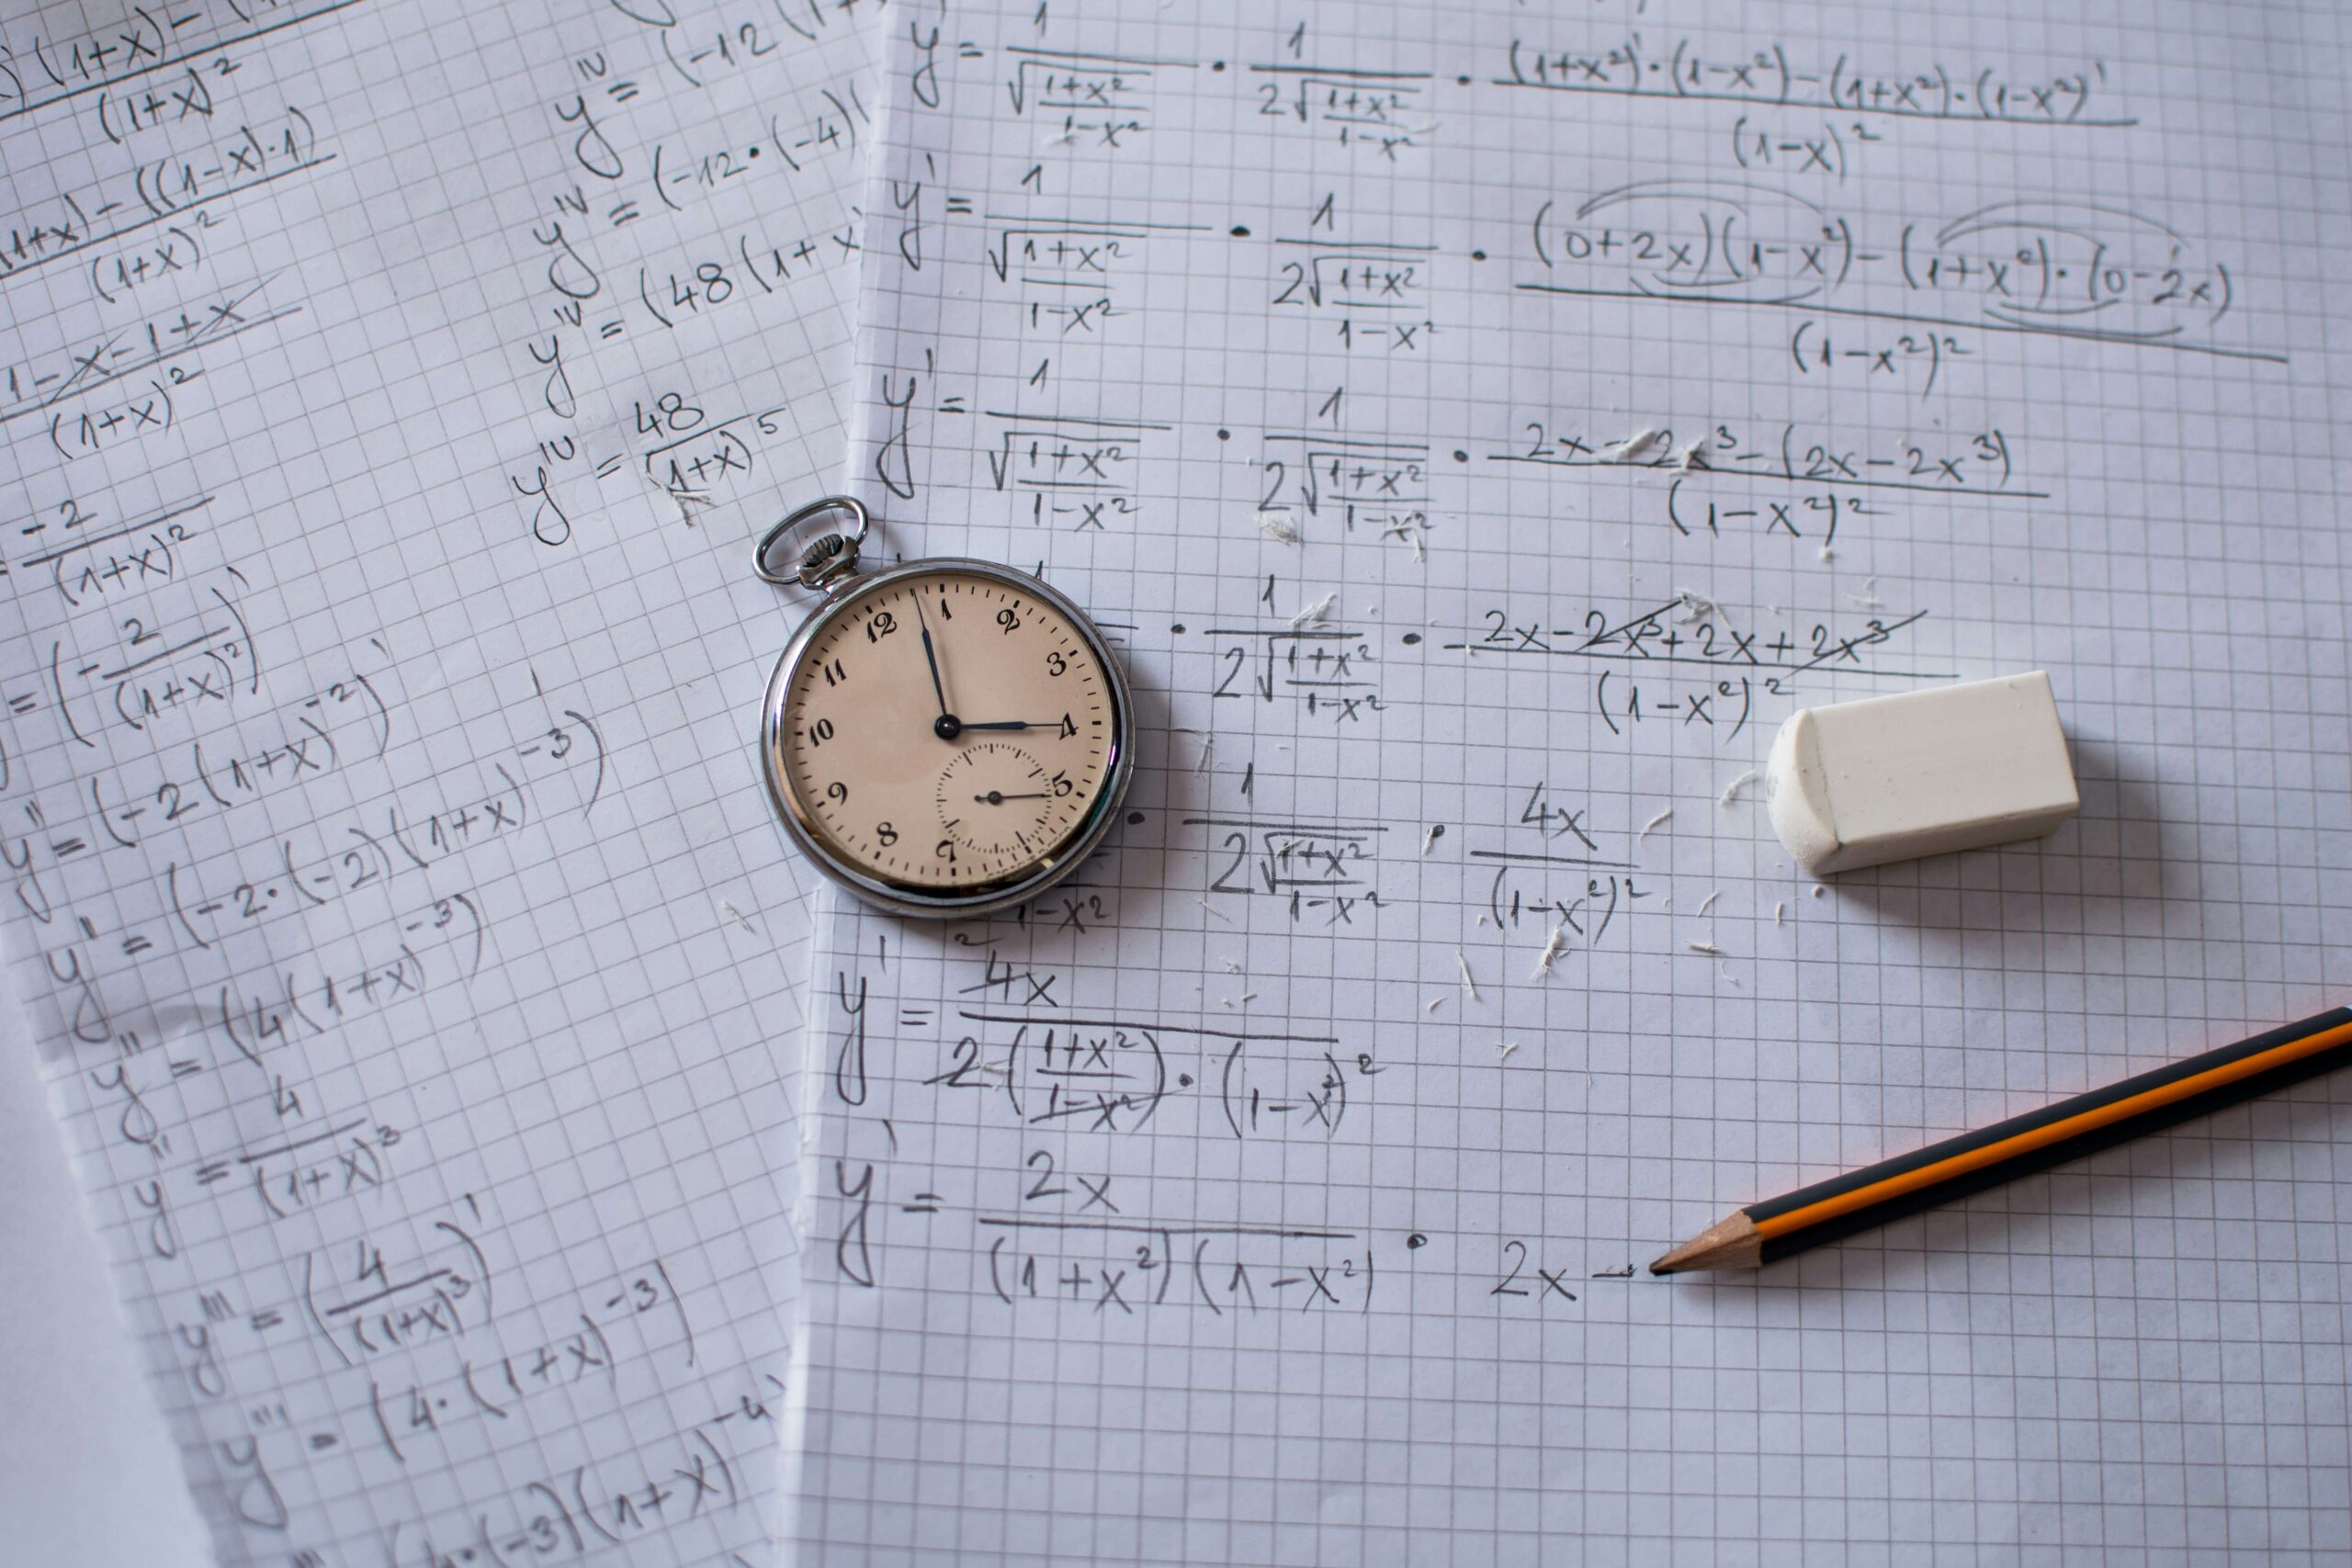 (1+x)-
(1+x)²
1+x)-((1-x)·1)
(1+x)²
1-x-1+x
(1+x)²
-2
(1+x)²
=(-2/(1+x)²)'
y''=(-2(1+x)⁻²)'
y'=(-2·(-2)(1+x)⁻³)
y''=(4(1+x)⁻³)
y''=4/(1+x)³
y'''=(4/(1+x)³)'
y'''=(4·(1+x)⁻³)
·(-3)(1+x)⁻⁴
yᴵⱽ=(-12(1+
yᴵⱽ=(-12·(-4)(
yᴵⱽ=(48(1+x
yᴵⱽ=48/(1+x)⁵
y=1/√((1+x²)/(1-x²))·1/(2√((1+x²)/(1-x²)))·((1+x²)'·(1-x²)-(1+x²)·(1-x²)')/(1-x)²
y'=1/√((1+x²)/(1-x²))·1/(2√((1+x²)/(1-x²)))·((0+2x)(1-x²)-(1+x²)·(0-2x))/(1-x²)²
y'=1/√((1+x²)/(1-x²))·1/(2√((1+x²)/(1-x²)))·(2x-2x³-(2x-2x³))/(1-x²)²
1
·1/(2√((1+x²)/(1-x²)))·(2x-2x³+2x+2x³)/(1-x²)²
1-x²·1/(2√((1+x²)/(1-x²)))·4x/(1-x²)²
2
y'=4x/(2((1+x²)/(1-x²))·(1-x²)²)
y'=2x/((1+x²)(1-x²))· 2x-
12
1
2
3
4
5
7
8
9
10
11